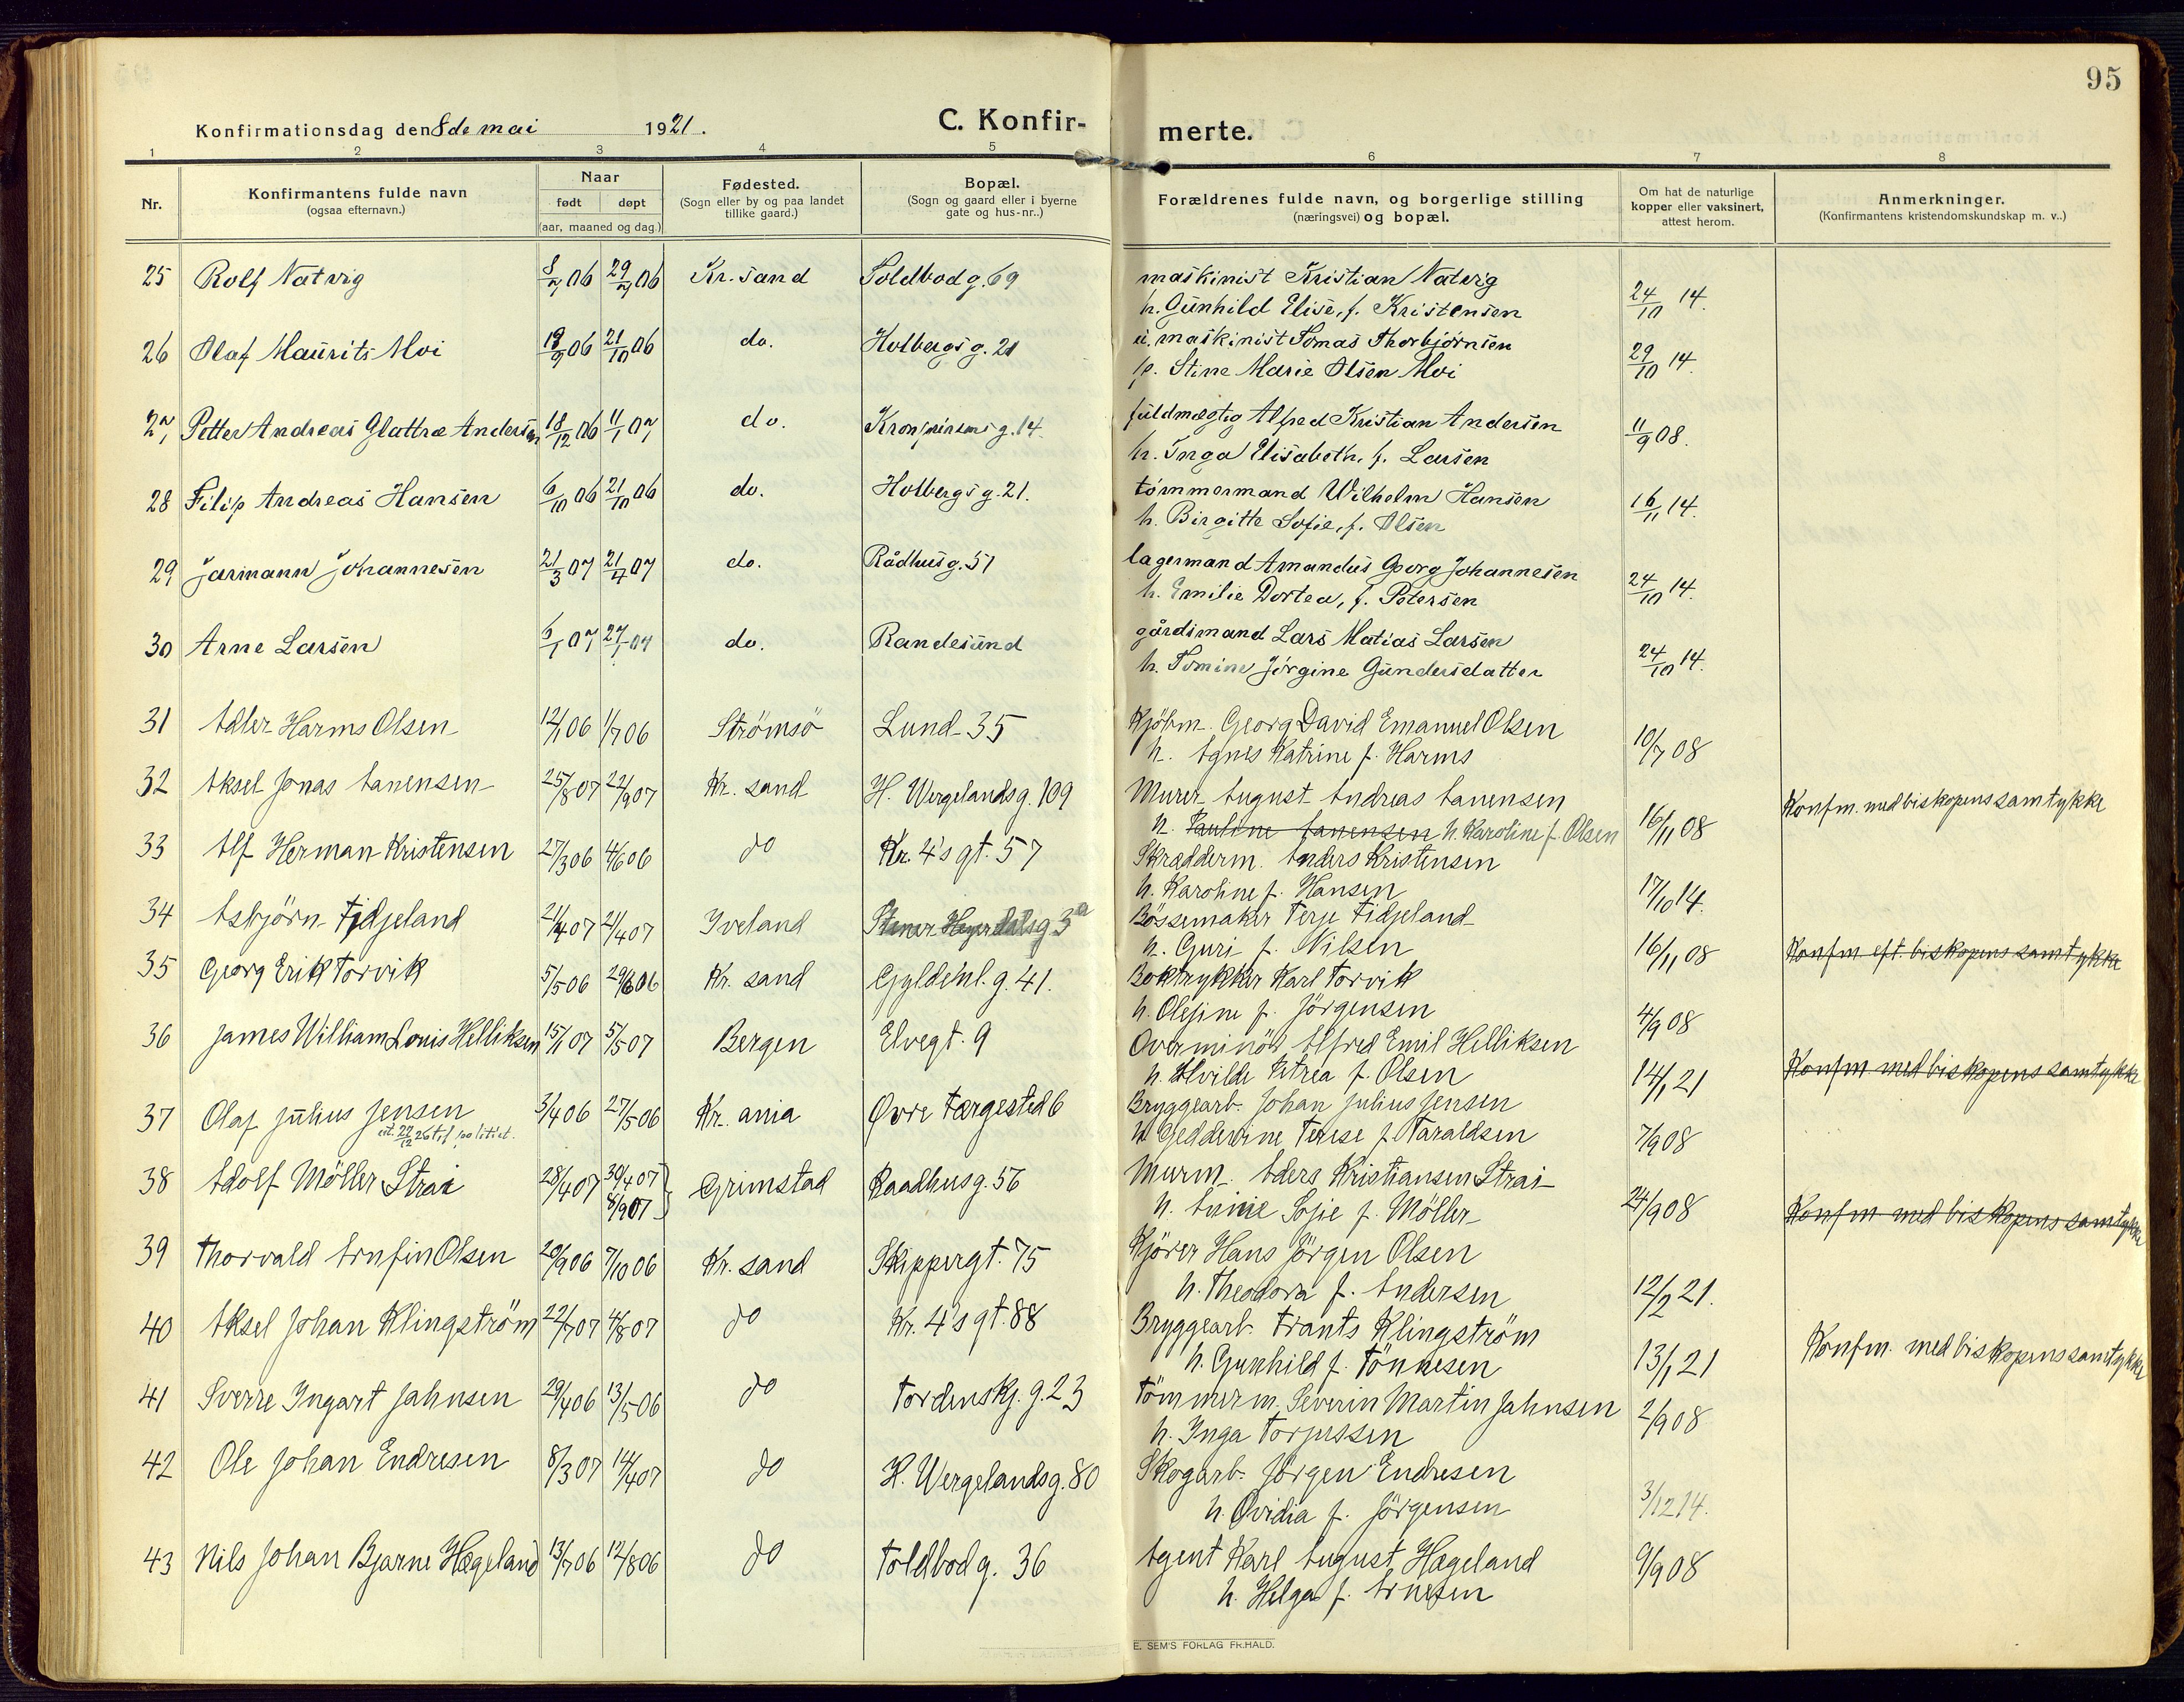 95
Konfirmationsdag den 8de mai 1921.
C. Konfir-
merte.
1 2 3 4 5 6 7 8
Nr.
Konfirmantens fulde navn
(ogsaa efternavn.)
Naar
født døpt
(aar, maaned og dag.)
Fødested.
(Sogn eller by og paa landet
tillike gaard.)
Bopæl.
(Sogn og gaard eller i byerne
gate og hus-nr..)
Forældrenes fulde navn, og borgerlige stilling
(næringsvei) og bopæl.
Om hat de naturlige
kopper eller vaksinert,
attest herom.
Anmerkninger.
(Konfirmantens kristendomskundskap m. v..)
25 Rolf Natvig 8/7 06 29/7 06 Kr. sand Toldbodg. 69 maskinist Kristian Natvig
h. Gunhild Elise, f. Kristensen 24/10 14.
26 Olaf Maurits Moi 19 06 21/10 06 do. Holbergs g. 21 u. maskinist Tomas Thorbjörnsen
p. Stine Marie Olsen Moi 29/10 14.
27 Petter Andreas Glattræ Andersen 18/12 06 11/1 07 do. Kronprinsens g. 14. fuldmægtig Alfred Kristian Andersen
h. Inga Elisabeth, f. Larsen 11/9 08.
28 Filip Andreas Hansen 6/10 06 21/10 06 do. Holbergs g. 21. tömmermand Wilhelm Hansen
h. Birgitte Sofie, f. Olsen 16/11 14.
29 Jarmann Johannesen 21/3 07 21/4 07 do. Rådhusg. 51 lagermand Amandus Georg Johannesen
h. Emilie Dortea, f. Petersen 24/10 14.
30 Arne Larsen 6/1 07 27/1 07 do. Randesund gårdsmand Lars Matias Larsen
h. Tomine Jörgine Gundersdatter 24/10 14.
31 Adler Harms Olsen 12/1 06 1/7 06 Strömsö Lund 35 Kjöbm. Georg David Emanuel Olsen
h. Agnes Katrine f. Harms 10/7 08
32 Aksel Jonas Aanensen 25/8 07 22/9 07 Kr. sand H. Wergelandsg. 109 Murer August Andreas Aanensen
h. Pauline Aanensen h. Karoline f. Olsen 16/11 08 Konfm. med biskopens samtykke
33 Alf Herman Kristensen 27/3 06 4/6 06 do Kr. 4's gt. 57 Skrædderm. Anders Kristensen
h. Karoline f. Hansen 17/10 14.
34 Asbjörn Fidjeland 21/4 07 21/4 07 Iveland Stener Heyerdalsg 3a Bössemaker Terje Fidjeland
h. Guri f. Nilsen 16/11 08 Konfm. eft. biskopens samtykke
35 Georg Erik Torvik 5/5 06 29/6 06 Kr. sand Gyldenl. g. 41. Boktrykker Karl Torvik
h. Olefine f. Jörgensen 4/9 08
36 James William Louis Helliksen 15/1 07 5/5 07 Bergen Elvegt. 9 Overminör Alfred Emil Helliksen
h. Alvilde Petrea f. Olsen 14/1 21 Konfm. med biskopens samtykke
37 Olaf Julius Jensen 3/4 06 27/5 06 Kr. ania Øvre Færgested 6 Bryggearb. Johan Julius Jensen
att. 22/12 26 til politiet.
h. Geddevine Terese f. Taraldsen 7/9 08
38 Adolf Möller Strai 28/4 07 30/4 07 Grimstad Raadhusg. 56 Murm. Aders Kristiansen Strai
8/9 07
h. Annie Sofie f. Möller 24/9 08 Konfm. med biskopens samtykke
39 Thorvald Arnfin Olsen 20/9 06 7/10 06 Kr. sand Skippergt. 75 Kjörer Hans Jörgen Olsen
h. Theodora f. Andersen 12/2 21.
40 Aksel Johan Klingström 22/7 07 4/8 07 do Kr. 4's gt. 88 Bryggearb. Frants Klingström
h. Gunhild f. Tönnesen 13/1 21 Konfm. med biskopens samtykke
41 Sverre Ingart Jahnsen 29/4 06 13/5 06 do Tordenskj. g. 23 Tömmerm. Severin Martin Jahnsen
h. Inga Torjussen 2/9 08
42 Ole Johan Endresen 8/3 07 14/4 07 do H. Wergelandsg. 80 Skogarb. Jörgen Endresen
h. Ovidia f. Jörgensen 3/12 14.
43 Nils Johan Bjarne Hægeland 13/7 06 12/8 06 do Toldbodg. 36 Agent Karl August Hægeland
h. Helga f. Arnesen 9/9 08
E. SEM'S FORLAG FR.HALD.